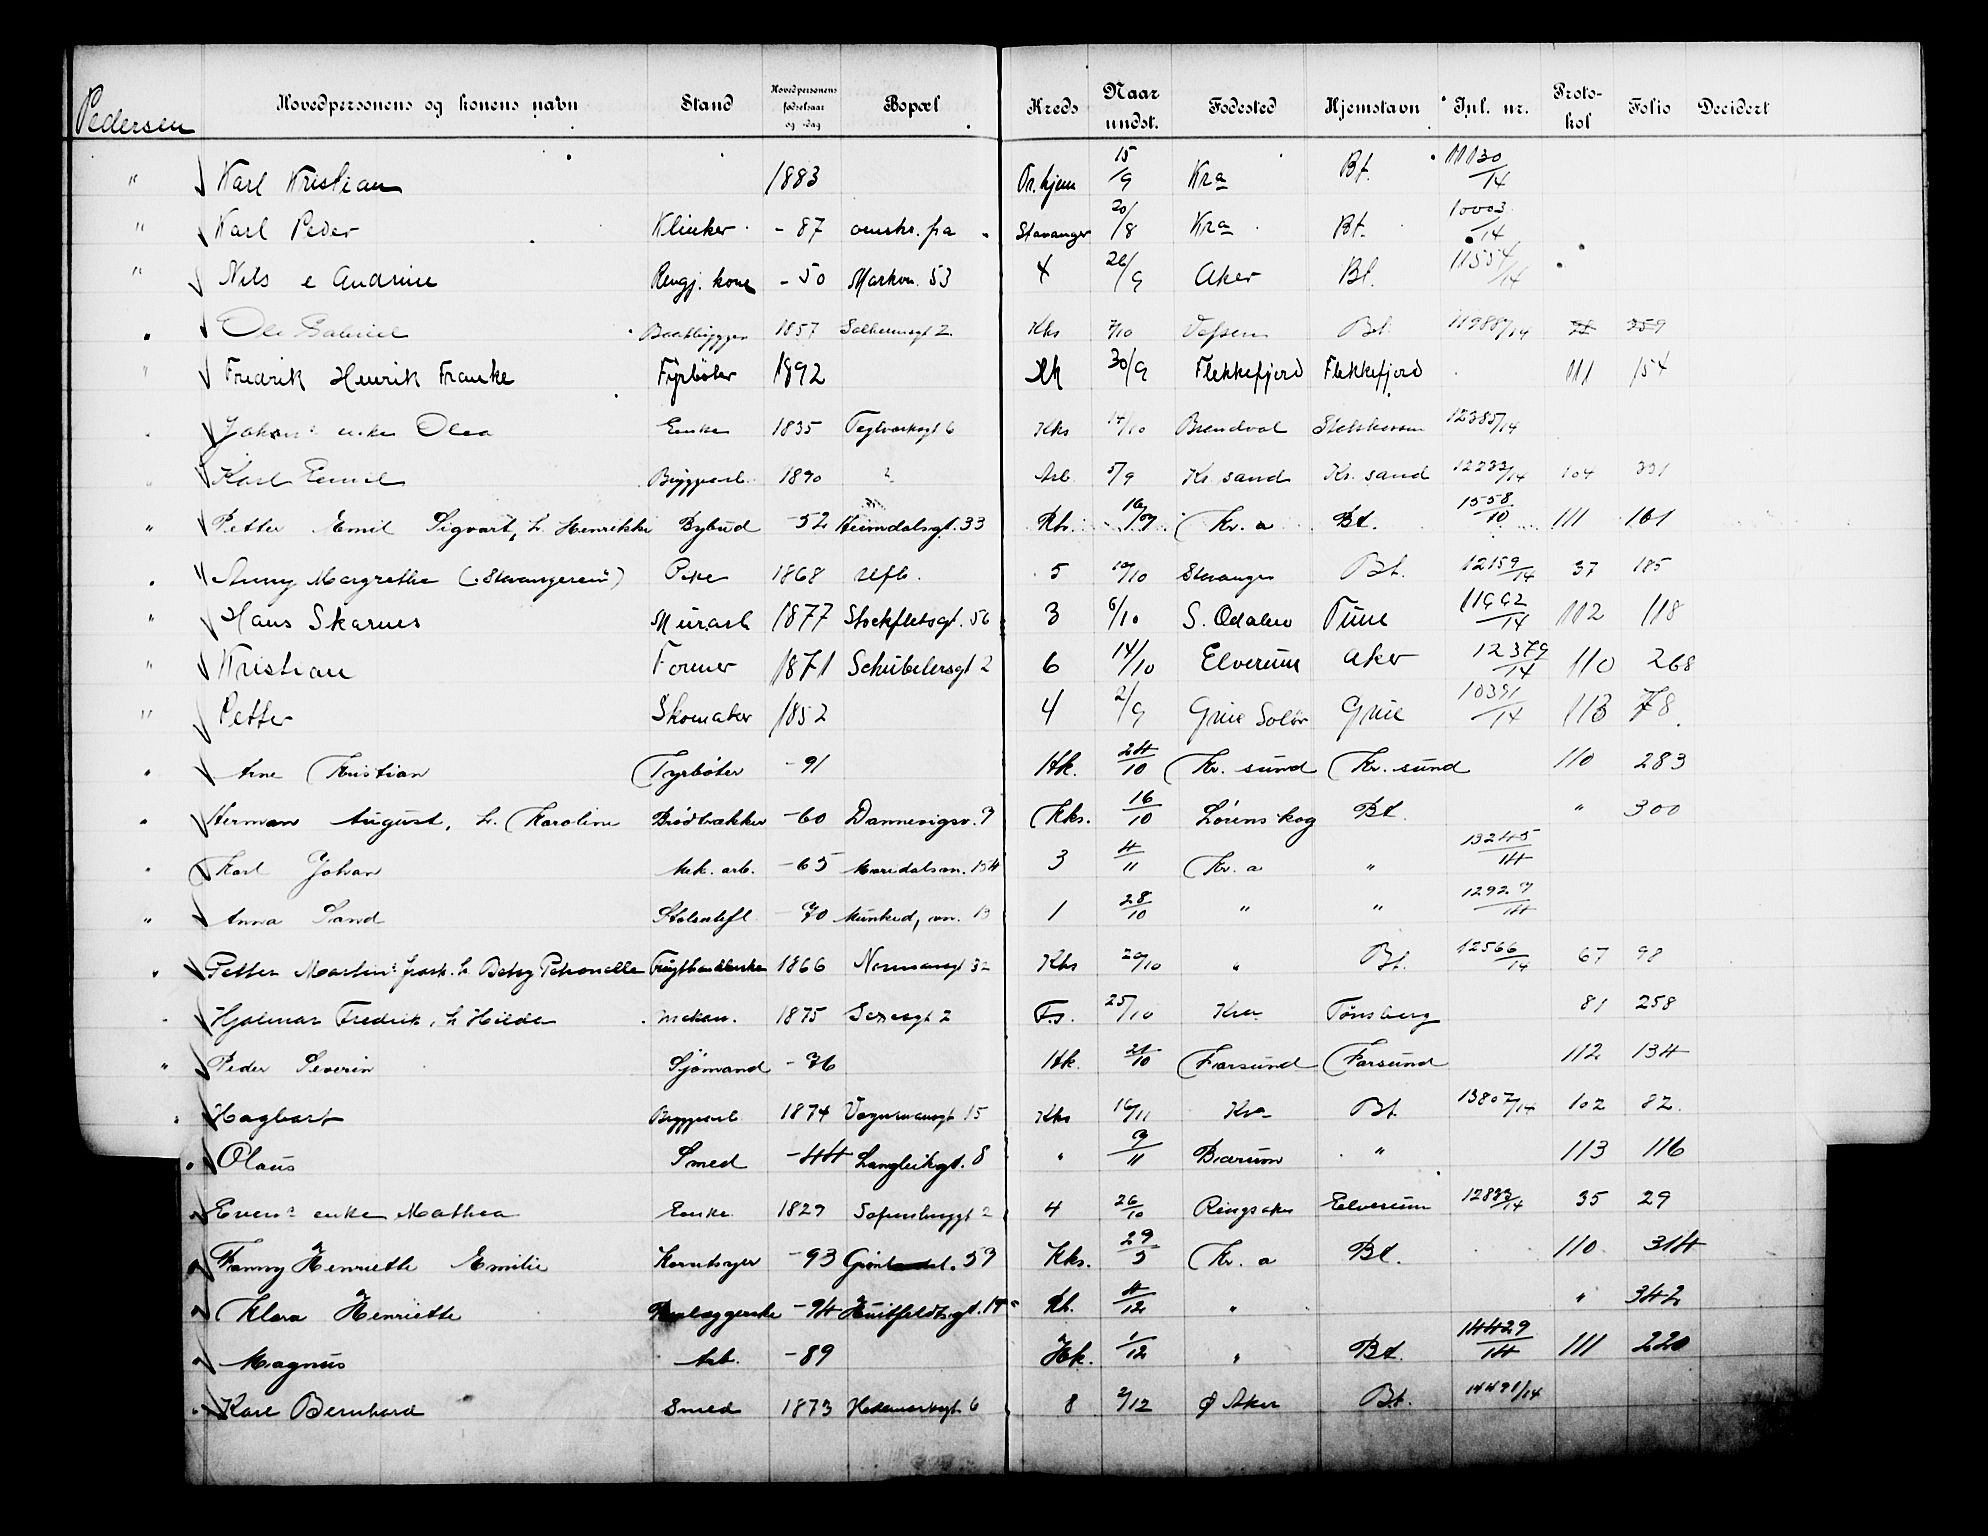 Pedersen Hovedpersonens og konens navn Stand Hovedpersonens fødselsaar og -dag Bopæl Kreds Naar undst. Fødested Hjemstavn Jnl. nr. Proto-kol Folio Decidert
" Karl Kristian 1883 Tr.hjem 15/9 Kra Bt. 11130/14
" Karl Peder Klinker - 87 omstr. fra Stavanger 20/8 Kra Bt. 10003/14
" Nils e Andrine Rengj. kone - 50 Markvn. 53 4 26/9 Aker Bt. 11554/14
" Ole Gabriel Baatbygger 1857 Solheimsgt 2 Kks 7/10 Vefsen Bt. 11988/14 259
" Fredrik Henrik Franke Fyrbøter 1892 Hk 30/9 Flekkefjord Flekkefjord 111 154
" Johans enke Olea Enke 1835 Teglverksgt 6 Kks 14/10 Brandval 12385/14
" Karl Emil Bryggearb. 1890 ? Arb 5/9 Kr. sand Kr. sand 12232/14 104 331
" Petter Emil Sigvart, h. Henrikke Bybud -52 Heimdalsgt. 33 Kks. Kr. a Bt. 1558/10 111 161
" Anny Margrethe (Stavangeren) Pike 1868 Ufb. 5 10/10 Stavanger Bt. 12159/14 37 185
" Hans Skarnes Murarb 1877 Stockfletsgt. 56 3 6/10 S. Odalen Tune 11992/14 112 118
" Kristian Former 1871 Schübelersgt 2 6 14/10 Elverum Aker 12379/14 110 268
" Petter Skomaker 1852 4 2/9 Grue Solør Grue 10391/14 113 78
" Arne Kristian Fyrbøter -91 Hk. 24/10 Kr. sund Kr. sund 110 283
" Herman August, h. Karoline Brødtrækker -60 Dannevigsv. 9 Kks. 16/10 Lørenskog Bt. " 300
" Karl Johan Mek. arb. -65 Maridalsvn. 134 3 4/11 Kr. a " 13245/14
" Anna Sand -70 Munked. vn. 19 1 28/10 " " 12929/14
" Petter Martins frask. h Betzy Petronelle Frugthandlerske 1866 Normansgt 32 Kks 20/10 " Bt. 12566/14 67 98
" Hjalmar Fredrik, h Hilda Mekan. 1875 Sarsgt 2 F.s. 25/10 Kra Tønsberg 81 258
" Peder Severin Sjømand -76 Hk. 21/10 Farsund Farsund 112 134
" Hagbart Bryggearb 1874 Vognmansgt 15 Kks 16/11 Kra Bt. 13807/14 102 82
" Olaus Smed -44 Langleiksgt. 8 " 9/11 Bærum " 113 116
" Evens enke Mathea Enke 1829 Sofienberggt 2 4 26/10 Ringsaker Elverum 12833/14 35 29
" Fanny Henriette Emilie Korntsyer -93 Grønlandsl. 59 Kks. 29/5 Kr. a Bt. 110 314
" Klara Henriette -94 Huitfeldtsgt. 14 Kh. 4/12 " " 342
" Magnus Arb. -89 Hk. 1/12 " Bt. 14429/14 111 220
" Karl Bernhard Smed 1873 Hedemarksgt 6 8 2/12 Ø Aker Bt. 14491/14